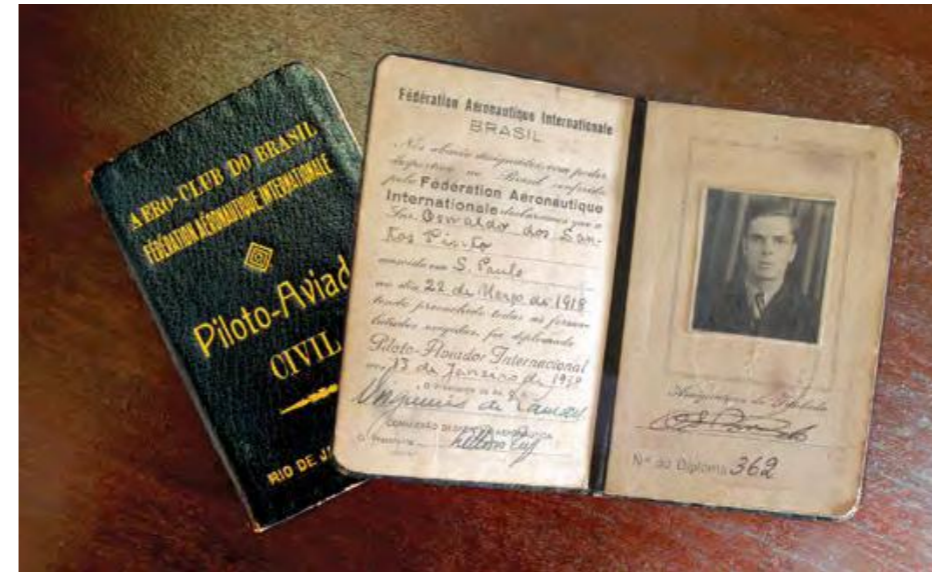 AERO-CLUB DO BRASIL
FÉDÉRATION AÉRONAUTIQUE INTERNATIONALE
Piloto-Aviad
CIVIL
RIO DE J
Fédération Aéronautique Internationale
BRASIL
Nós abaixo designados, com poder
desportivo no Brasil conferido
pela Fédération Aéronautique
Internationale declaramos que o
Snr. Oswaldo dos San-
tos Pinto
nascido em S. Paulo
no dia 22 de Março de 1918
tendo preenchido todas as formu-
lidades exigidas, foi diplomado
Piloto-Aviador Internacional
em 13 de Janeiro de
de
COMISSÃO
O Presidente
Assignatura do
Nº do Diploma 362